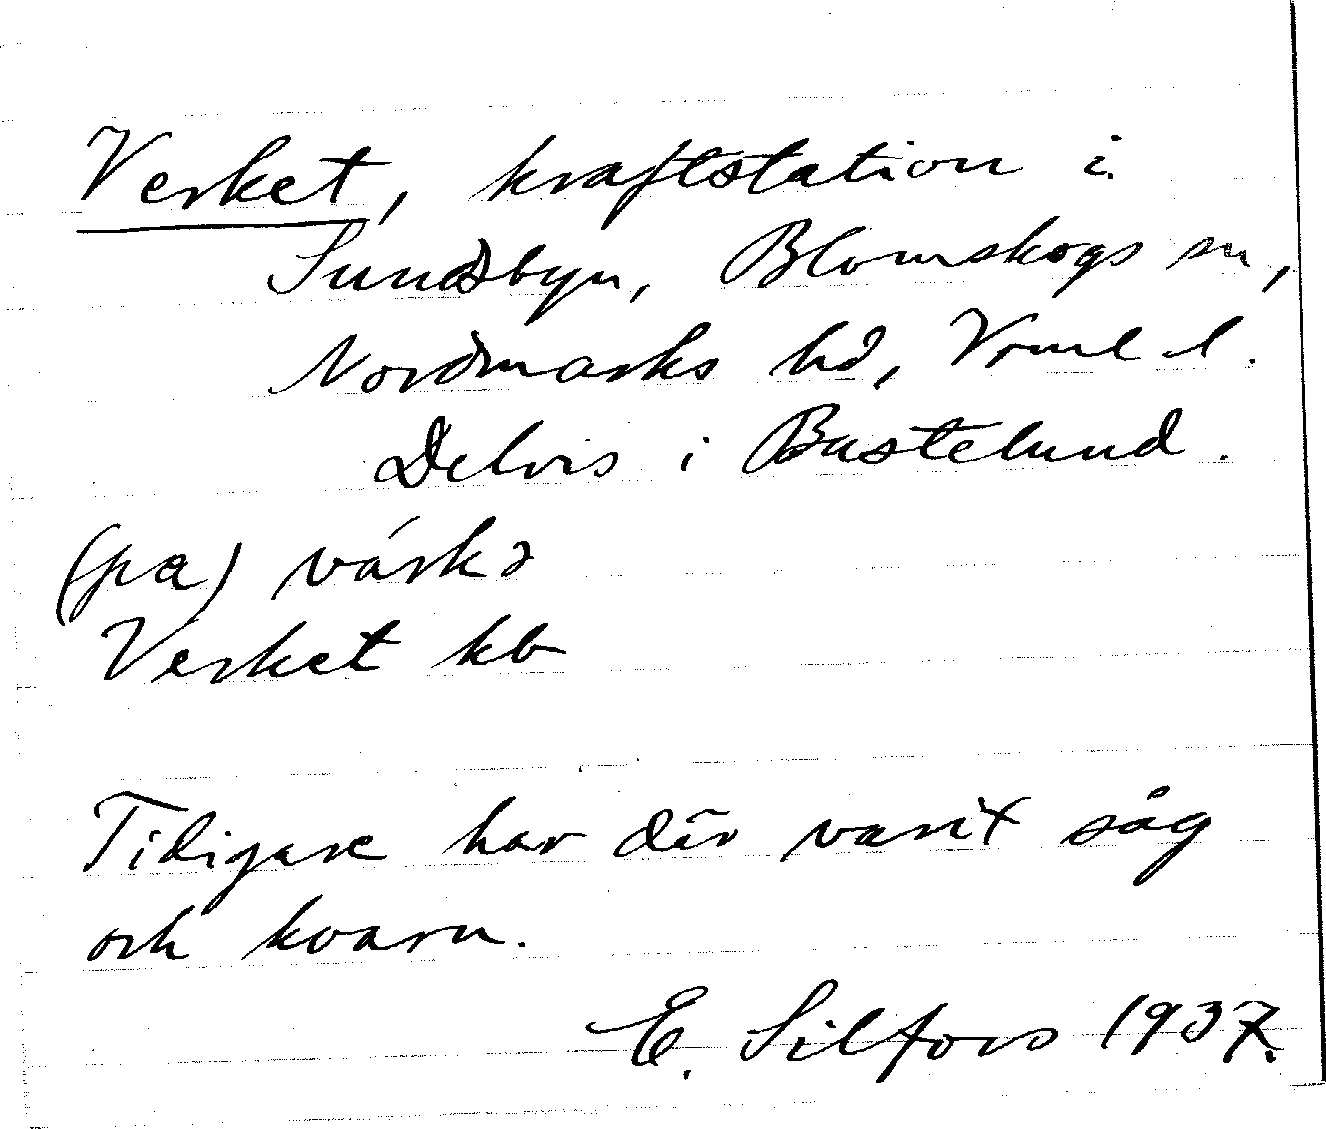 Verket, kraftstation i
Sundsbyn, Blomskogs sn,
Nordmarks hd, Vrml l.
Delvis i Bastelund.
(pa) várkə
Verket kb
Tidigare har där varit såg
och kvarn.
E. Silfors 1937.